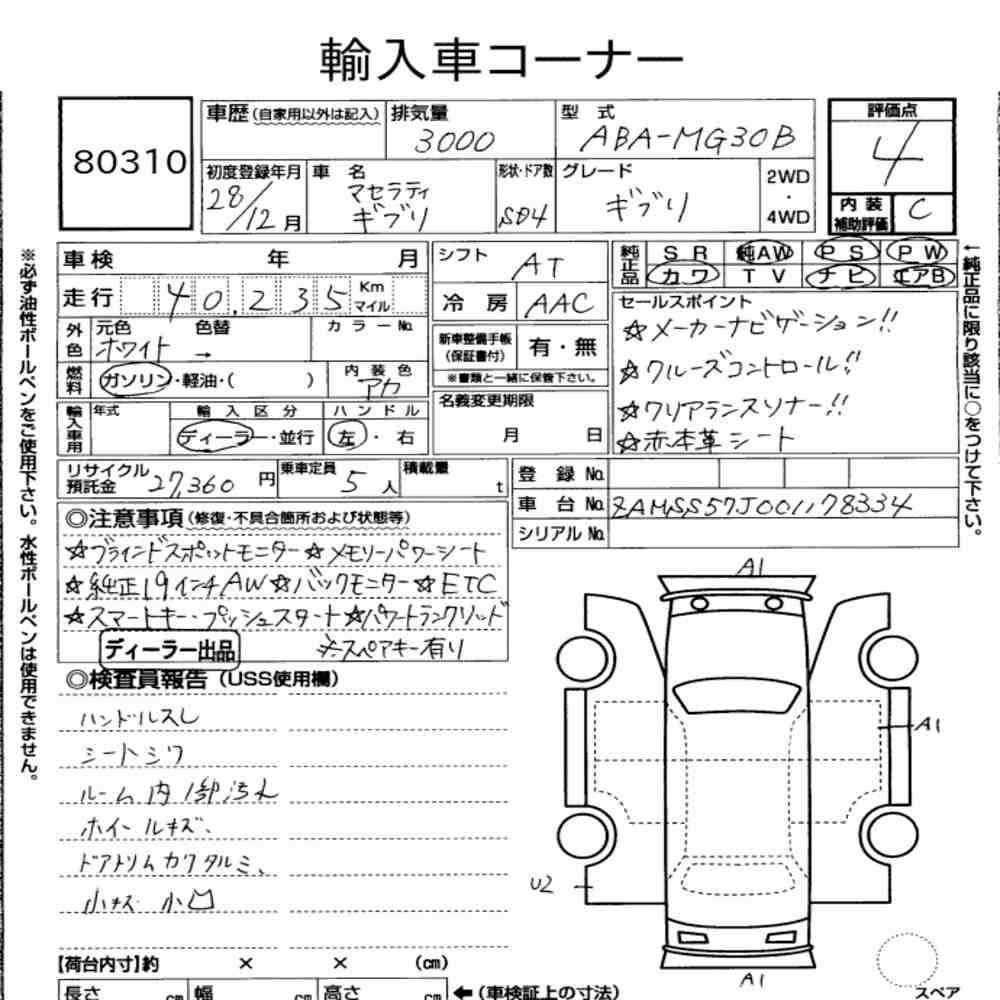 輸入車コーナー
80310
車歴(自家用以外は記入) 排気量 3000 型式 ABA-MG30B 評価点 4
初度登録年月 28/12月 車名 マセラティ ギブリ 形状・ドア数 SD4 グレード ギブリ 2WD・4WD 内装補助評価 C
車検 年 月 シフト AT 純正品 SR 純AW PS PW
走行 40,235 Km マイル 冷房 AAC カワ TV ナビ エアB
外色 元色 ホワイト 色替 → カラーNo. 新車整備手帳(保証書付) 有・無 セールスポイント
☆メーカーナビゲーション!!
燃料 ガソリン・軽油・( ) 内装色 アカ ※書類と一緒に保管下さい。 ☆クルーズコントロール!!
輸入車用 年式 輸入区分 ハンドル 名義変更期限 ☆クリアランスソナー!!
ディーラー・並行 左・右 月 日 ☆赤本革シート
リサイクル預託金 27,360円 乗車定員 5人 積載量 t 登録No.
車台No. ZAMSS57J001178334
シリアルNo.
◎注意事項(修復・不具合箇所および状態等)
☆ブラインドスポットモニター☆メモリーパワーシート
☆純正19インチAW☆バックモニター☆ETC
☆スマートキー・プッシュスタート☆パワートランクリッド
ディーラー出品 ※スペアキー有り
◎検査員報告(USS使用欄)
ハンドルスレ
シートシワ
ルーム内1部汚れ
ホイールキズ、
ドアトリムカワタルミ、
小キズ 小凹
【荷台内寸】約 × × (cm)
長さ cm 幅 cm 高さ cm ←(車検証上の寸法)
A1
A1
U2
A1
スペア
※必ず油性ボールペンをご使用下さい。水性ボールペンは使用できません。
←純正品に限り該当に○をつけて下さい。